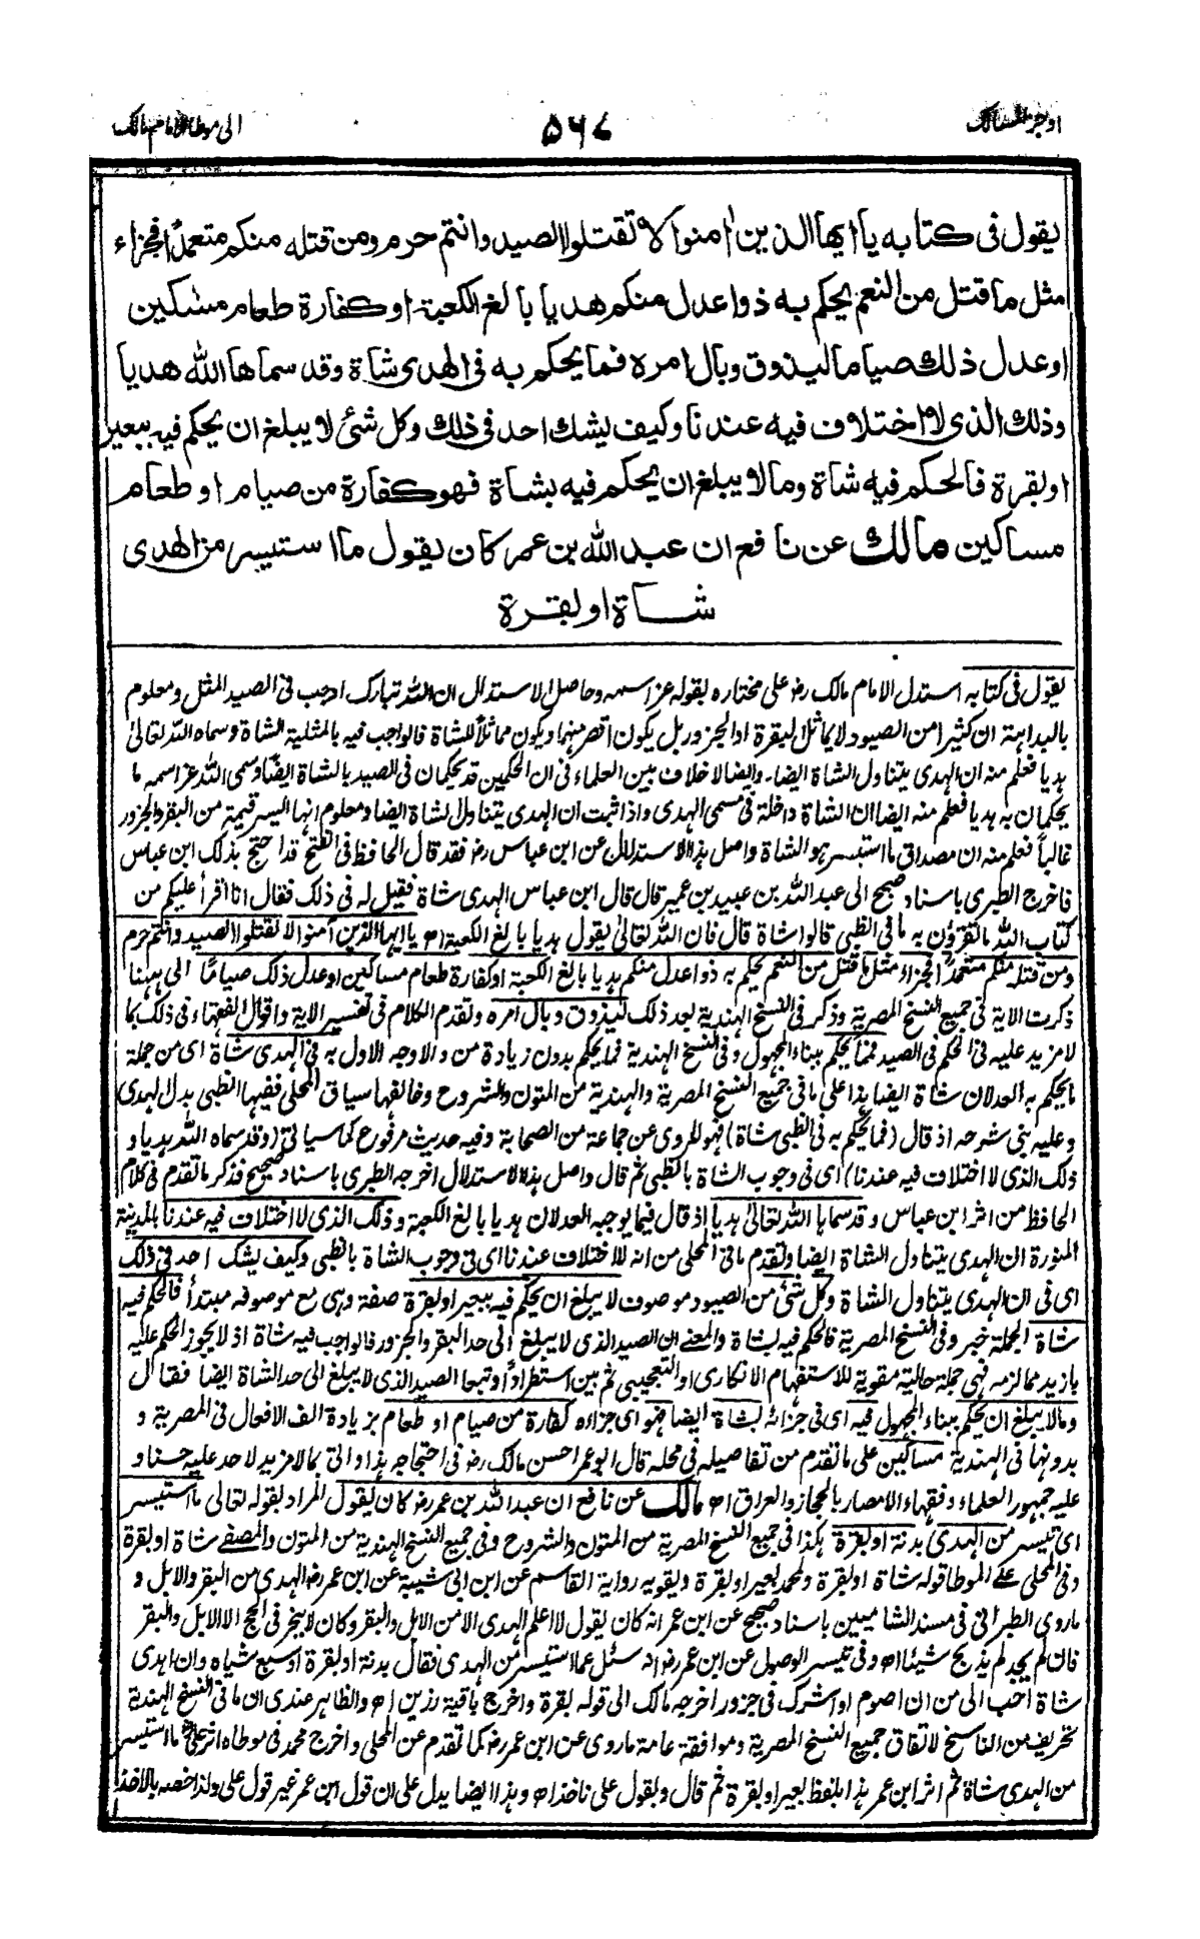 اوجز المسالك
٥٦٧
الى موطا الامام مالك
يقول فى كتابه يا ايها الذين امنوا لا تقتلوا الصيد وانتم حرم ومن قتله منكم متعمدا فجزاء
مثل ما قتل من النعم يحكم به ذوا عدل منكم هديا بالغ الكعبة او كفارة طعام مسٰكين
او عدل ذلك صياما ليذوق وبال امره فما يحكم به فى الهدى شاة وقد سماها الله هديا
وذلك الذى لا اختلاف فيه عندنا وكيف يشك احد فى ذلك وكل شئ لا يبلغ ان يحكم فيه ببعير
او بقرة فالحكم فيه شاة وما لا يبلغ ان يحكم فيه بشاة فهو كفارة من صيام او طعام
مساكين مالك عن نافع ان عبد الله بن عمر كان يقول ما استيسر من الهدى
شاة او بقرة
يقول فى كتابه استدل الامام مالك رض على مختاره بقوله عز اسمه وحاصل الاستدلال ان الله تبارك اوجب فى الصيد المثل ومعلوم
بالبداهة ان كثيرا من الصيود لا يماثل البقرة او الجزور بل يكون اقصر منهما ويكون مماثلاً للشاة فالواجب فيه بالمثلية الشاة وسماه الله تعالىٰ
هديا فعلم منه ان الهدى يتناول الشاة ايضا۔ وايضا لا خلاف بين العلماء فى ان الحكمين قد يحكمان فى الصيد بالشاة ايضًا وسمى الله عز اسمه ما
يحكمان به هديا فعلم منه ايضا ان الشاة داخلة فى مسمى الهدى واذا ثبت ان الهدى يتناول الشاة ايضا ومعلوم انها ايسر قيمة من البقر والجزور
غالباً فعلم منه ان مصداق ما استيسر هو الشاة واصل هذا الاستدلال عن ابن عباس رض فقد قال الحافظ فى الفتح قد احتج بذلك ابن عباس
فاخرج الطبرى باسناد صحيح الى عبد الله بن عبيد بن عمير قال قال ابن عباس الهدى شاة فقيل له فى ذلك فقال انا اقرأ عليكم من
كتاب الله ما تقرؤن به ما فى الظبى قالوا شاة قال فان الله تعالىٰ يقول هديا بالغ الكعبة اھ يا ايها الذين آمنوا لا تقتلوا الصيد وانتم حرم
ومن قتله منكم متعمداً فجزاء مثل ما قتل من النعم يحكم به ذوا عدل منكم هديا بالغ الكعبة او كفارة طعام مساكين او عدل ذلك صيامًا الى ههنا
ذكرت الاية فى جميع النسخ المصرية وذكر فى النسخ الهندية بعد ذلك ليذوق وبال امره وتقدم الكلام فى تفسير الاية واقوال الفقهاء فى ذلك بما
لا مزيد عليه فى الحكم فى الصيد فما يحكم ببناء المجهول وفى النسخ الهندية فما يحكم بدون زيادة من والاوجه الاول به فى الهدى شاة اى من جملة
ما يحكم به العدلان شاة ايضا هذا على ما فى جميع النسخ المصرية والهندية من المتون والشروح وخالفها سياق المحلى ففيها الظبى بدل الهدى
وعليه بنى شرحه اذ قال (فما يحكم به فى الظبى شاة) فهو المروى عن جماعة من الصحابة وفيه حديث مرفوع كما سيأتى (وقد سماه الله هديا و
ذلك الذى لا اختلاف فيه عندنا) اى فى وجوب الشاة بالظبى ثم قال واصل هذا الاستدلال اخرجه الطبرى باسناد صحيح فذكر ما تقدم فى كلام
الحافظ من اثر ابن عباس وقد سماها الله تعالىٰ هديا اذ قال فيما يوجبه العدلان هديا بالغ الكعبة وذلك الذى لا اختلاف فيه عندنا بالمدينة
المنورة ان الهدى يتناول الشاة ايضا وتقدم ما فى المحلى من انه لا اختلاف عندنا اى فى وجوب الشاة بالظبى وكيف يشك احد فى ذلك
اى فى ان الهدى يتناول الشاة وكل شئ من الصيود موصوف لا يبلغ ان يحكم فيه ببعير او بقرة صفة وهى مع موصوفه مبتدأ فالحكم فيه
شاة الجملة خبر وفى النسخ المصرية فالحكم فيه بشاة والمعنى ان الصيد الذى لا يبلغ الى حد البقر والجزور فالواجب فيه شاة اذ لا يجوز الحكم عليه
بازيد مما لزمه فهى جملة حالية مقوية للاستفهام الانكارى او التعجيبى ثم بين استطراداً وتبعا الصيد الذى لا يبلغ الى حد الشاة ايضا فقال
وما لا يبلغ ان يحكم ببناء المجهول فيه اى فى جزائه بشاة ايضا فهو اى جزاءه كفارة من صيام او طعام بزيادة الف الافعال فى المصرية و
بدونها فى الهندية مساكين على ما تقدم من تفاصيله فى محله قال ابو عمر احسن مالك رض فى احتجاجه هذا واتى بما لا مزيد لاحد عليه حسنا و
عليه جمهور العلماء وفقهاء الامصار بالحجاز والعراق اھ مالك عن نافع ان عبد الله بن عمر رض كان يقول المراد بقوله تعالى ما استيسر
اى تيسر من الهدى بدنة او بقرة هكذا فى جميع النسخ المصرية من المتون والشروح وفى جميع النسخ الهندية من المتون والمصفى شاة او بقرة
وفى المحلى على الموطا قوله شاة او بقرة ولمحمد بعير او بقرة ويقويه رواية القاسم عن ابن ابى شيبة عن ابن عمر رض الهدى من البقر والابل و
ما روى الطبرانى فى مسند الشاميين باسناد صحيح عن ابن عمر انه كان يقول لا اعلم الهدى الا من الابل والبقر وكان لا ينحر فى الحج الا الابل والبقر
فان لم يجد لم يذبح شيئا اھ وفى تيسير الوصول عن ابن عمر رض انه سئل عما استيسر من الهدى فقال بدنة او بقرة او سبع شياه وان اهدى
شاة احب الى من ان اصوم او اشرك فى جزور اخرجه مالك الى قوله بقرة واخرج باقيه رزين اھ والظاهر عندى ان ما فى النسخ الهندية
تحريف من الناسخ لاتفاق جميع النسخ المصرية وموافقة عامة ما روى عن ابن عمر رض كما تقدم عن المحلى واخرج محمد فى موطاه اثر على رض ما استيسر
من الهدى شاة ثم اثر ابن عمر هذا بلفظ بعير او بقرة ثم قال وبقول على ناخذ اھ وهذا ايضا يدل على ان قول ابن عمر غير قول على ولذا خصه بالاخذ